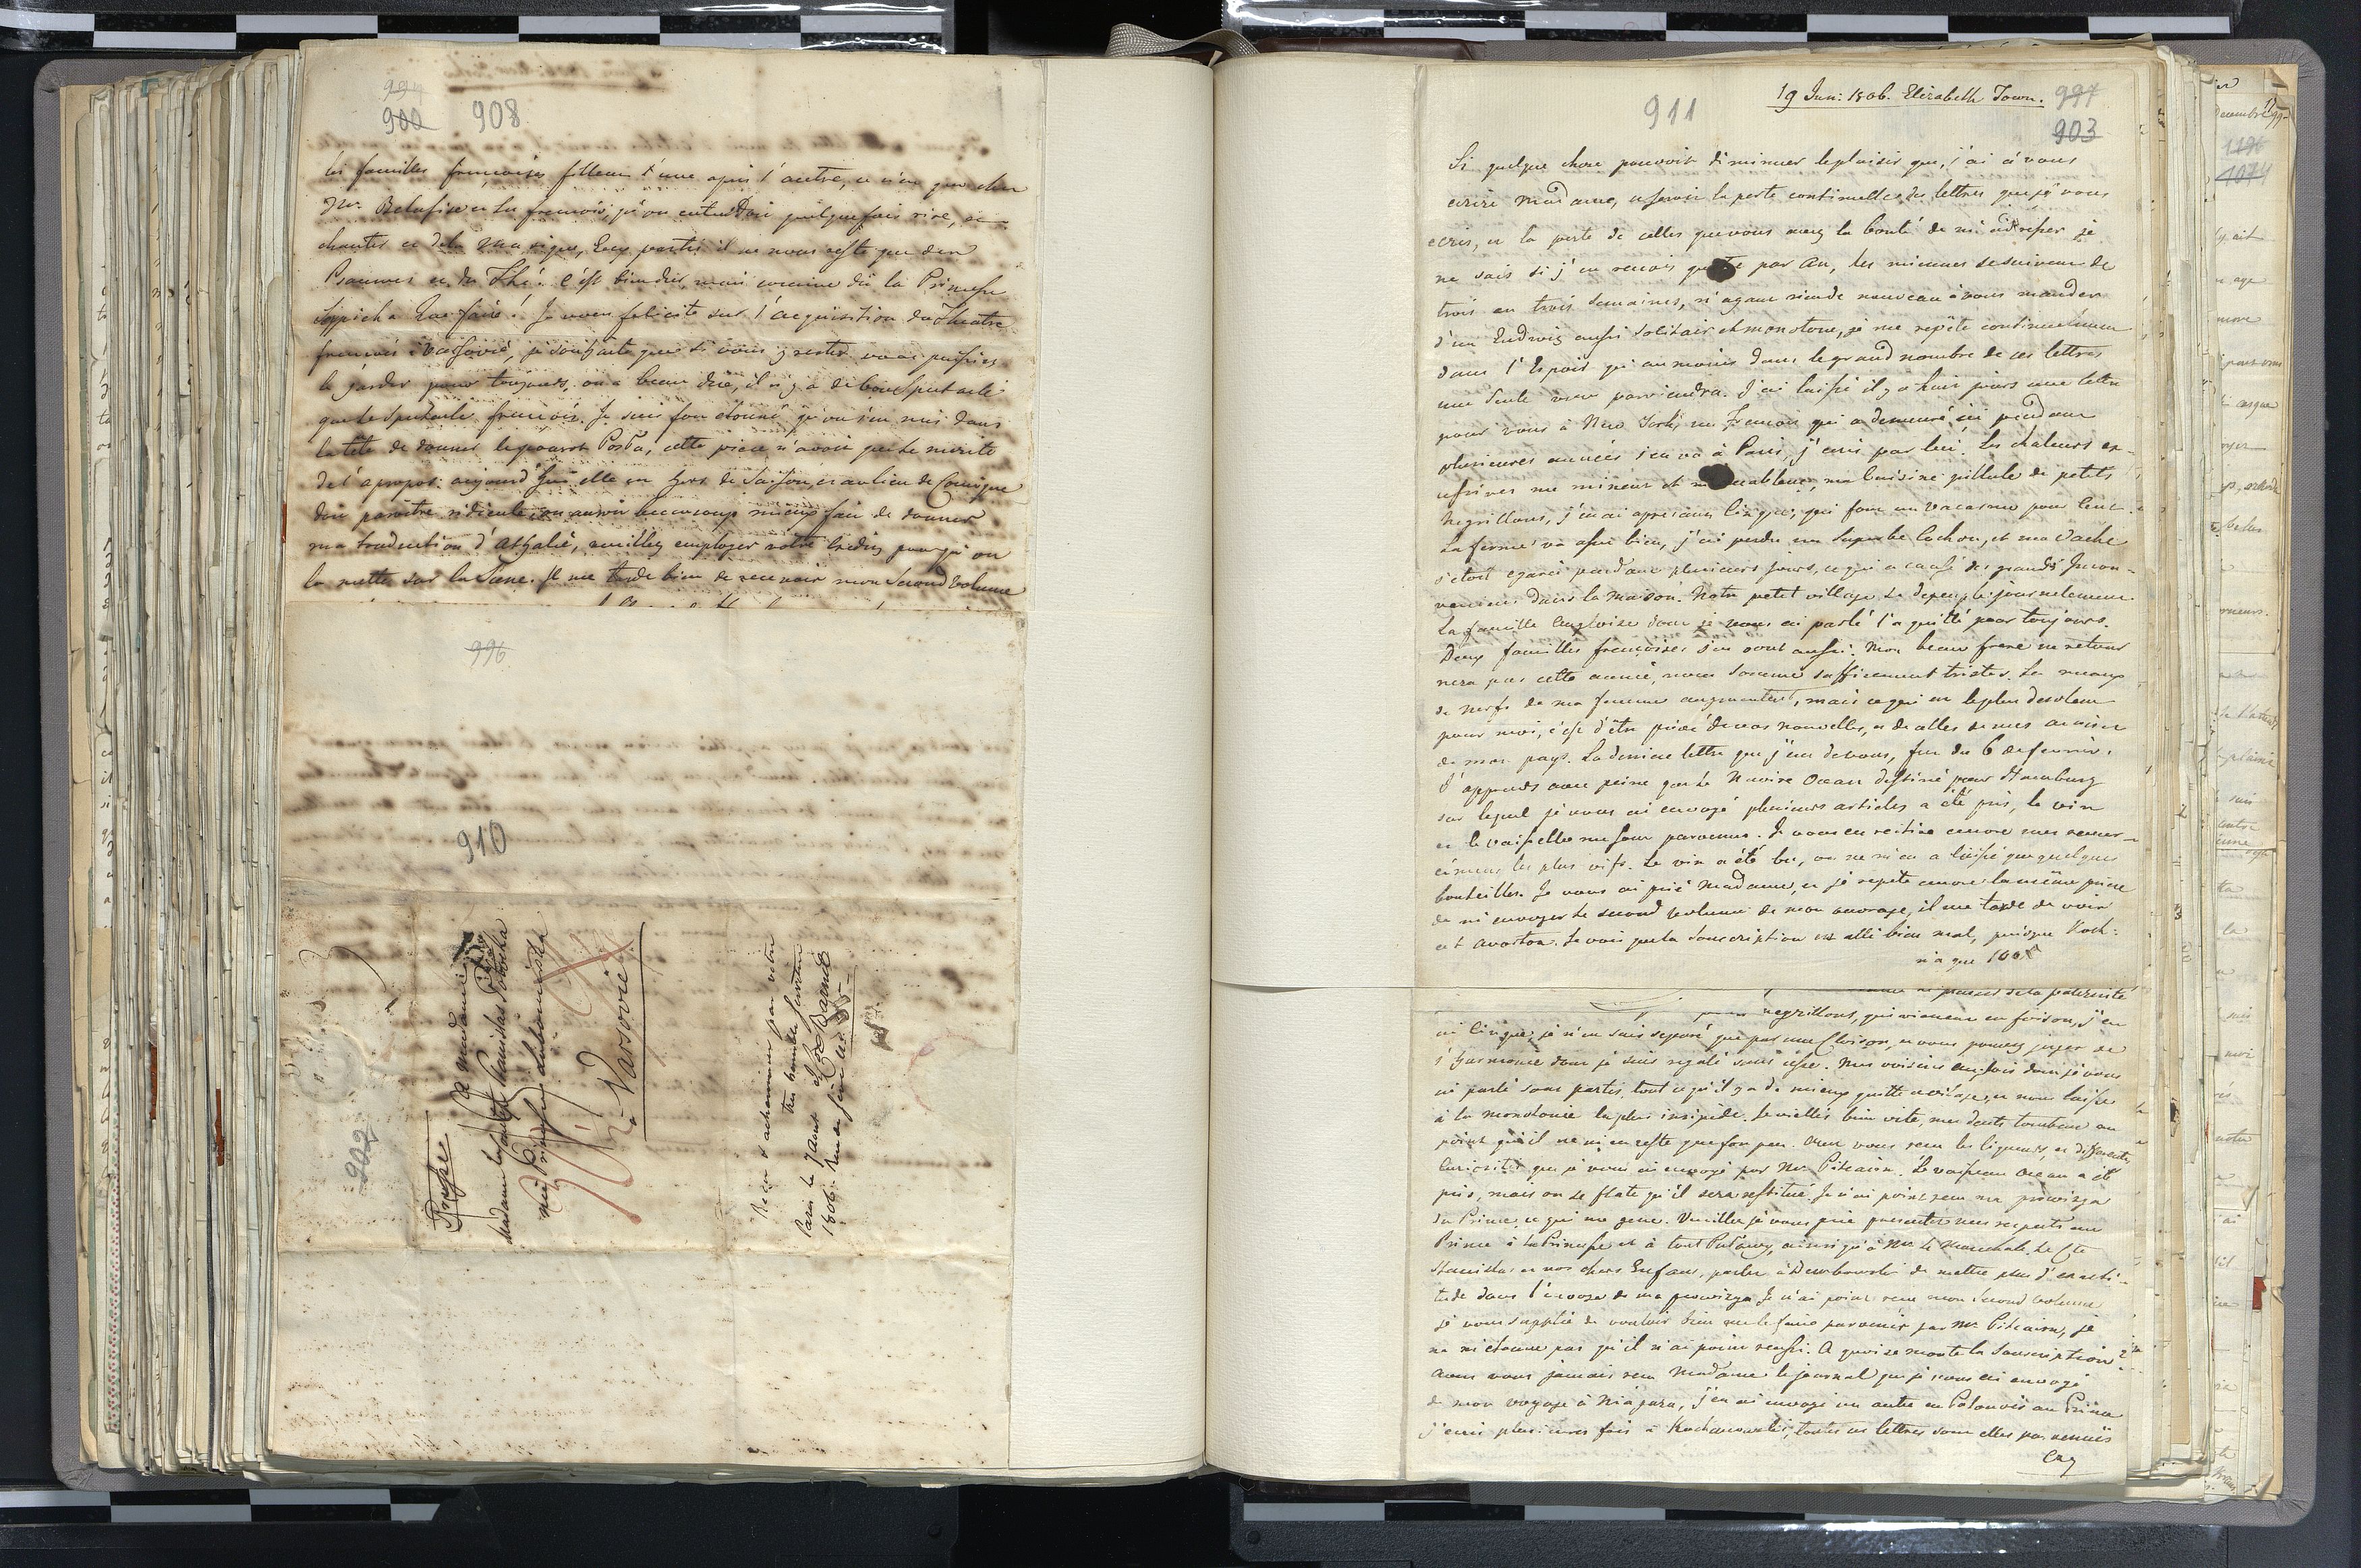 994
900 908
les familles françoises fillent l'une après l'autre, ce n'est que chez
Mr. et les françois, qu'on entendoit quelquefois rire,
chanter et de la Musique, Eux partis il ne nous reste que des
Pseaumes et du Thé: c'est bien dur, mais comme dit la Princesse
Que faire! Je vous felicite sur l'acquisition du Theatre
françois à Varsovie, je souhaite que si vous y restez vous puissiez
le garder pour toujours, on a beau dire, il n'y a de bon Spectacle
que le Spectacle françois. Je suis fort étonné, qu'on s'en mis dans
la tête de donner le powrot Posła, cette piece n'avoit que le merite
de l'apropos: aujourd'hui elle est hors de Saison, et au lieu de Comique
doit paroître ridicule, on auroit beaucoup mieux fait de donner
ma traduction d'Athalie, veuillez employer votre Credit pour qu'on
la mette sur la Scene. Il me tarde bien de recevoir mon Second Volume
996
910
902
Prusse
A madame
Madame la Comtesse Stanislas Potocka
née Princesse Lubomirska
à Varsovie
Recue & acheminée par votre
tres humble Serviteur
Paris le 7 Aout
1806.
911
19 Jun: 1806. Elizabeth Town. 997
903
Si quelque chose pouvoit diminuer le plaisir que j'ai à vous
ecrire Madame, ce seroit la perte continuelle des lettres que je vous
ecris, et la perte de celles que vous avez la bonté de m'adresser je
ne sais si j'en reçois par an, les miennes se suivent de
trois en trois Semaines, n'ayant rien de nouveau à vous mander
d'un Endroit aussi solitair et monotone, je me repête continuellement
dans l'Espoir qu'au moins dans le grand nombre de ces lettres
une Seule vous parviendra. J'ai laissé il y a huit jours une lettre
pour vous à New York, un François qui a demeuré ici pendant
plusieures années s'en va à Paris, j'ecris par lui. Les chaleurs ex-
cessives me minent et m'accablent, ma Cuisine pillule de petits
Negrillons, j'en ai apresent Cinque, qui font un Vacarme pour Cent.
La ferme va assé bien, j'ai perdu un Superbe Cochon, et ma Vache
s'étoit egarée pendant plusieurs jours, ce qui a causé des grands Incon-
veniens dans la maison. Notre petit village se depeuple journelement.
La famille Angloise dont je vous ai parlé l'a quitté pour toujours.
Deux familles françoises s'en vont aussi. Mon beau frere ne retour
nera pas cette année, nous sommes suffisament tristes. Les maux
de nerfs de ma femme augmentent, mais ce qui est le plus desolant
pour moi, c'est d'être privé de vos nouvelles, et de celles de mes amis
de mon pays. La derniere lettre que j'eu de vous, fut du 6 de fevrier.
J'apprends avec peine que le Navire Ocean destiné pour Hamburg
sur lequel je vous ai envoyé plusieurs articles a été pris, le vin
et le vaisselle me sont parvenus. Je vous en reitere encore mes remer-
cimens les plus vifs. Le vin a été bu, on ne m'en a laissé que quelques
bouteilles. Je vous ai prié Madame, et je repete encore la même priere
de m'envoyer le second volume de mon ouvrage, il me tarde de voir
cet avorton. Je vois que la Souscription est allé bien mal, puisque Koch:
n'a que 100#
de la paternité
negrillons, qui viennent en foison, j'en
ai Cinque, je n'en suis separé que par une Cloison, et vous pouvez juger de
l'harmonie dont je suis regalé sans cesse. Mes voisins anglois dont je vous
ai parlé sont partis, tout ce qu'il y a de mieux quitte ce village, et nous laisse
à la monotonie la plus insipide. Je viellis bien vite, mes dents tombent au
point qu'il ne m'en reste que fort peu. Avez vous reçu les liqueurs, et differentes
Curiosités que je vous ai envoyé par Mr Pitcairn. Le vaisseau Ocean a été
pris, mais on se flate qu'il sera restitué. Je n'ai point reçu ma prowizya
du Prince, ce qui me gene. Veuillez je vous prie presenter mes respects au
Prince à la Princesse et à tout Puławy, ainsi qu'à Me la Marechale, le Cte
Stanislas et vos chers Enfans, parlez à Dembowski de mettre plus d'exacti-
tude dans l'envoye de ma prowizya. Je n'ai point reçu mon second volume
je vous supplie de vouloir bien me le faire parvenir par Mr Pitcairn, je
ne m'etonne pas qu'il n'ai point reussi. A quoi se monte la Souscription?
Avez vous jamais reçu Madame le journal que je vous ai envoyé
de mon voyage à Niagara, j'en ai envoyé un autre en Polonois au Prince
j'ecris plusieures fois à Kochanowski, toutes ces lettres sont elles parvenuës